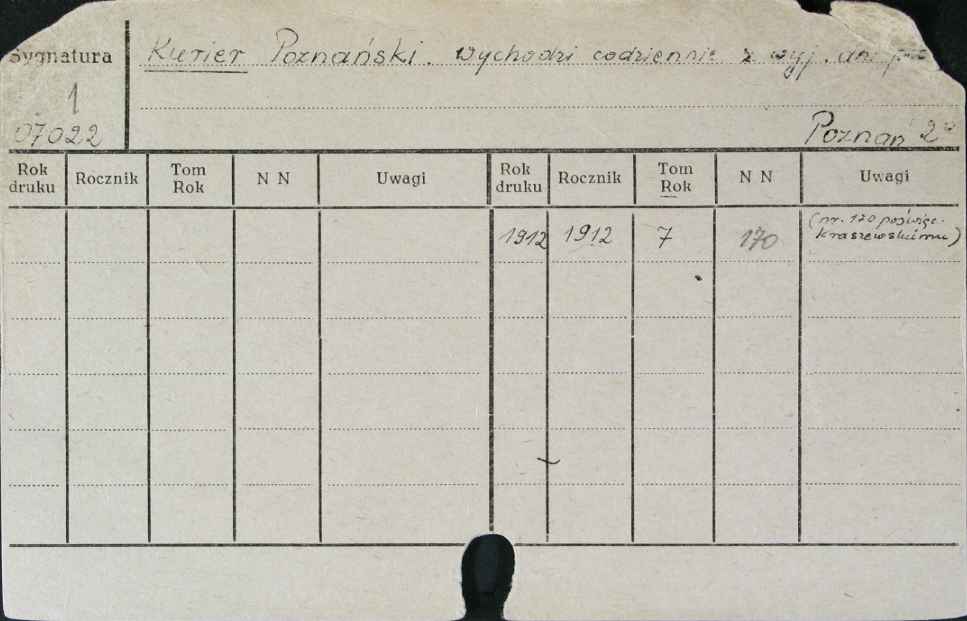 Sygnatura
1
07022
Kurier Poznański. wychodzi codziennie z wyj.
Poznań 2°
Rok druku Rocznik Tom Rok N N Uwagi Rok druku Rocznik Tom Rok N N Uwagi
1912 1912 7 170 (nr. 170 poświęc.
Kraszewskiemu)